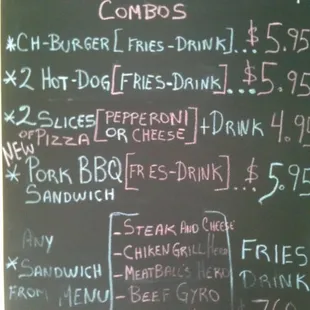 COMBOS
*CH-BURGER [FRIES-DRINK]...$5.95
*2 HOT-DOG [FRIES-DRINK]...$5.95
*2 SLICES [PEPPERONI OR CHEESE] +DRINK 4.9
OF PIZZA
NEW
*PORK BBQ SANDWICH [FRIES-DRINK]...$5.95
ANY
*SANDWICH
FROM MENU
-STEAK AND CHEESE
-CHIKEN GRILL HERO
-MEATBALL'S HERO
-BEEF GYRO
FRIES
DRINK